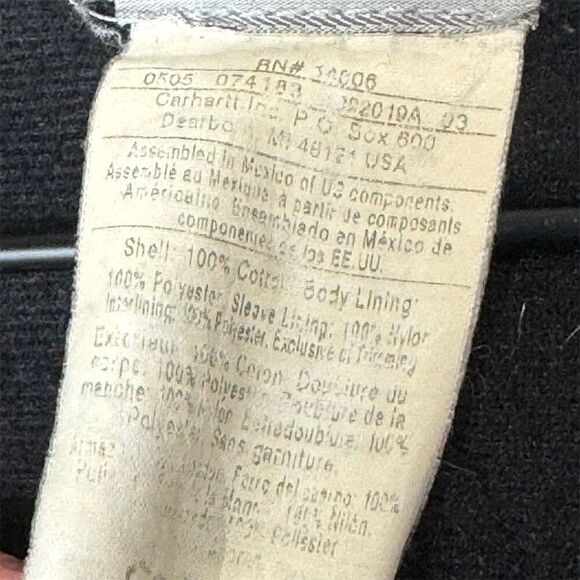 RN# 14806
0505 074183 982019A 03
Carhartt Inc. P.O. Box 600
Dearborn, MI 48121 USA
Assembled in Mexico of US components.
Assemblé au Mexique à partir de composants
Américains Ensamblado en México de
componentes de los EE.UU.
Shell: 100% Cotton Body Lining:
100% Polyester Sleeve Lining: 100% Nylon
Interlining: 100% Polyester, Exclusive of Trimming
Extérieur: 100% Coton. Doublure du
corps: 100% Polyester Doublure de la
manche: 100% Nylon Entredoublure: 100%
Polyester Sans garniture.
Forro del cuerpo: 100%
100% Nilón.
100% Poliéster